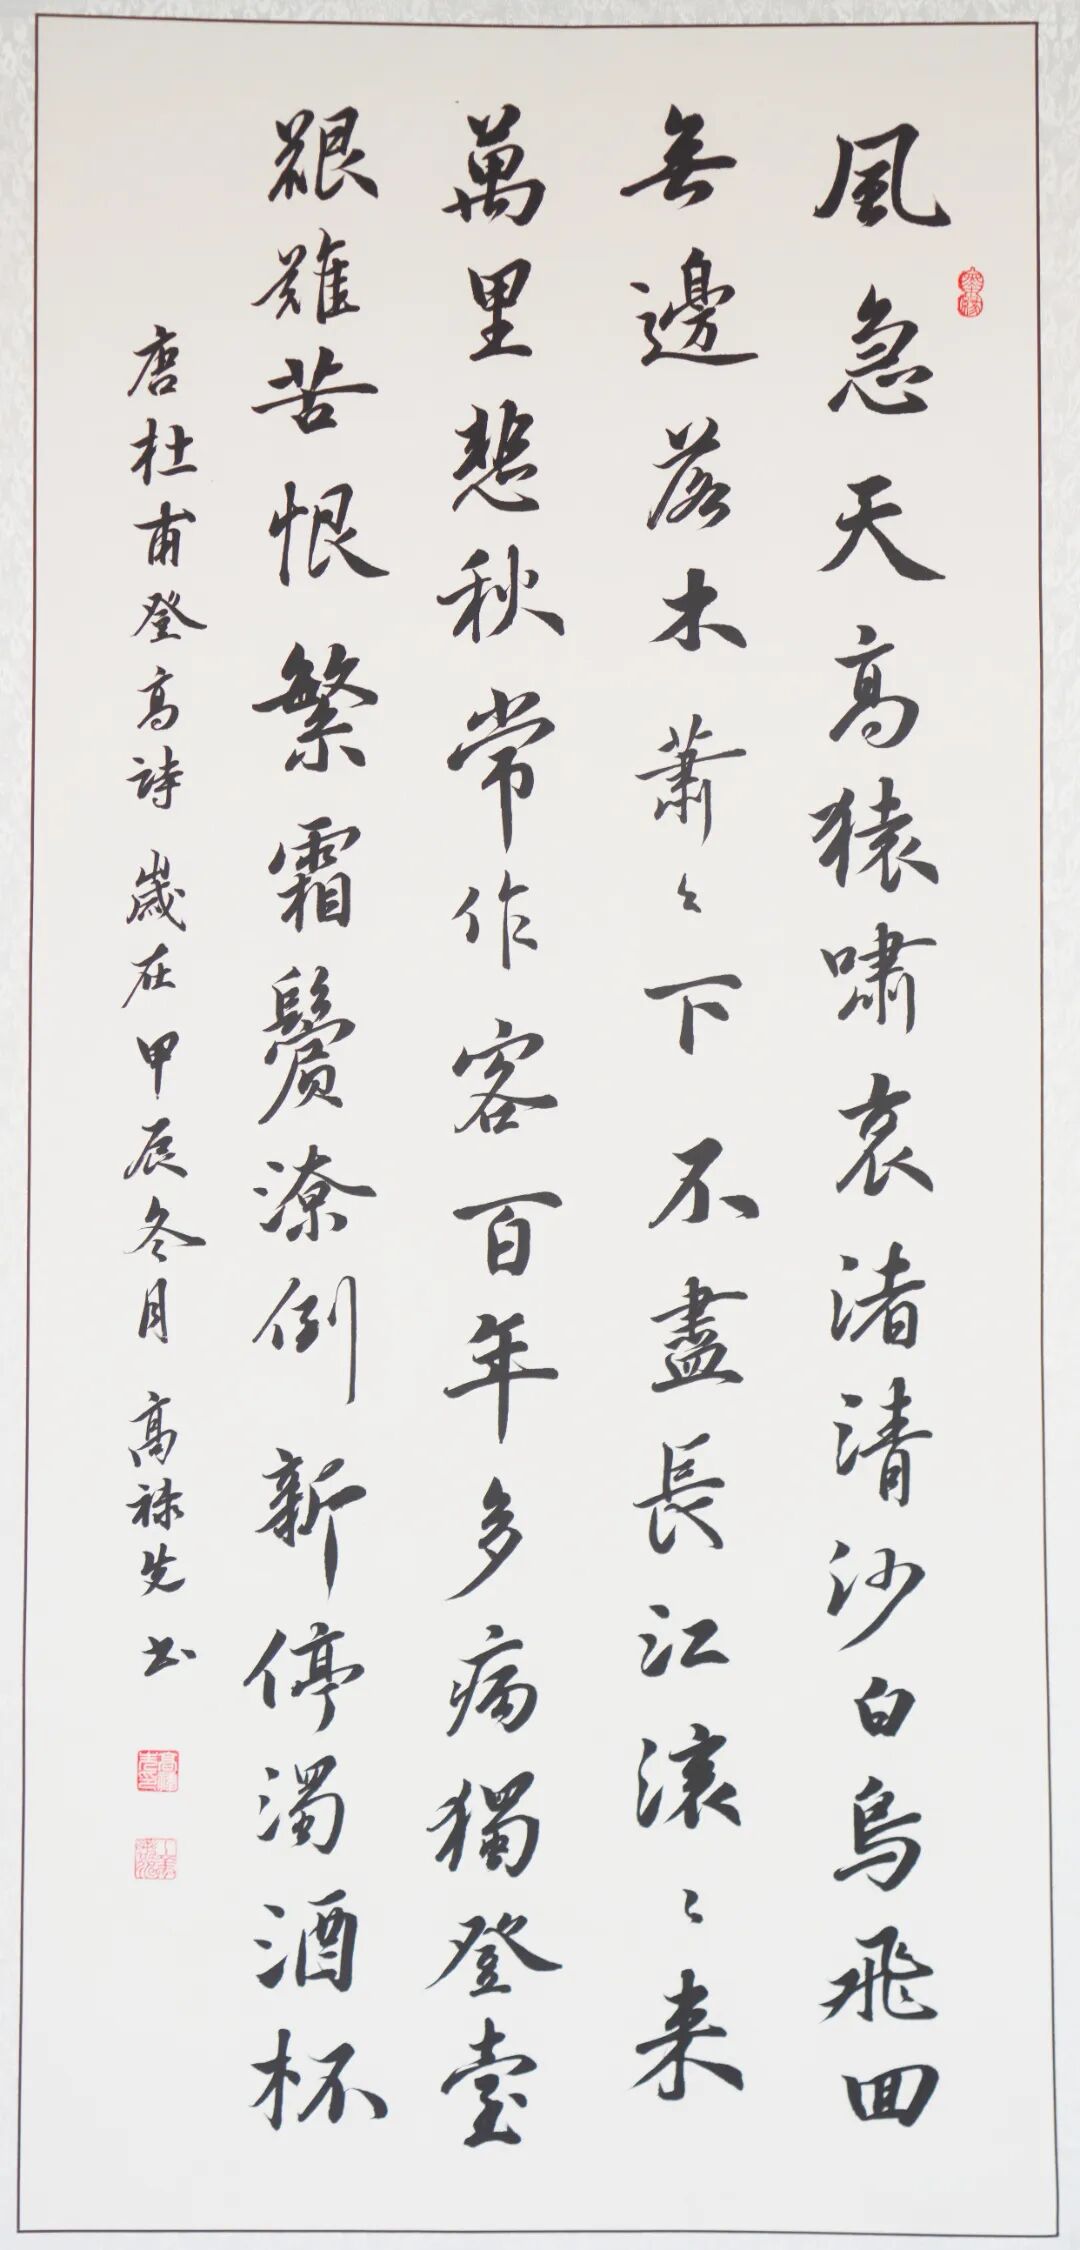 風急天高猿嘯哀渚清沙白鳥飛回
無邊落木蕭々下不盡長江滾々来
萬里悲秋常作客百年多病獨登臺
艱難苦恨繁霜鬢潦倒新停濁酒杯
唐杜甫登高詩 歲在甲辰冬月 高祿先书